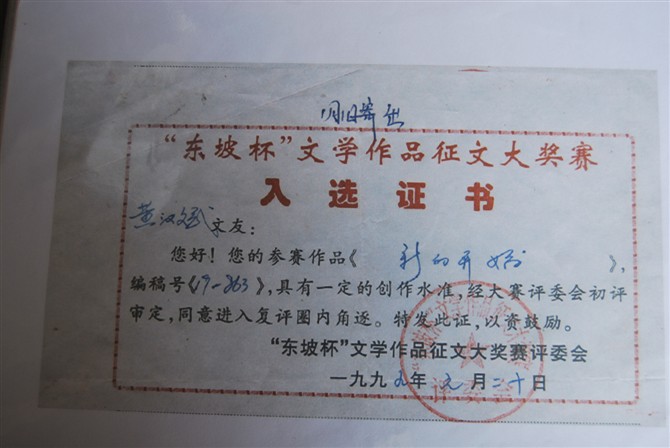 “东坡杯”文学作品征文大奖赛
入选证书
黄汉文友：
您好！您的参赛作品《新的开始》，
编稿号《19-863》，具有一定的创作水准，经大赛评委会初评
审定，同意进入复评圈内角逐。特发此证，以资鼓励。
“东坡杯”文学作品征文大奖赛评委会
一九九九年元月二十日
评委会